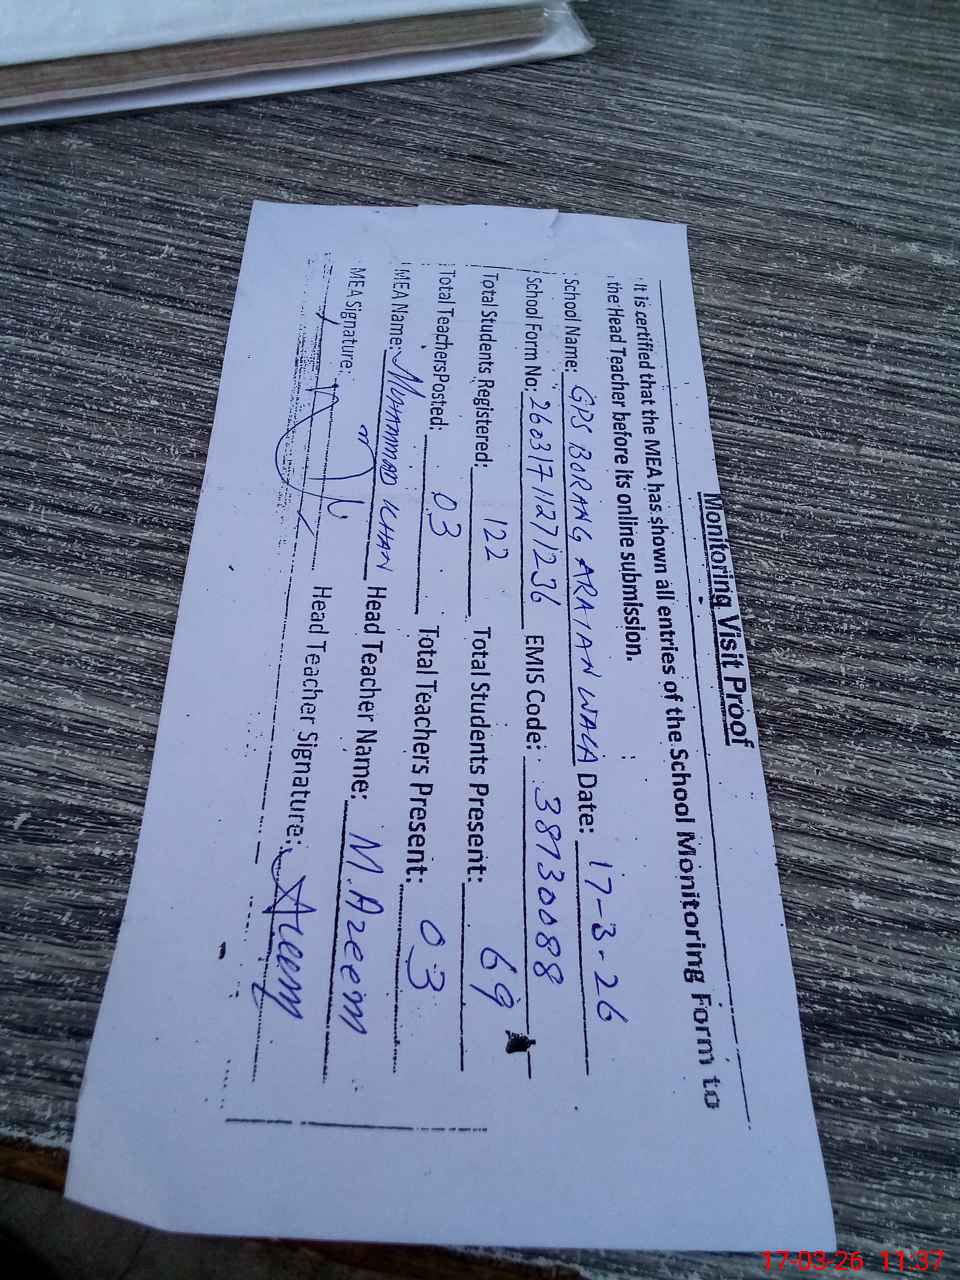 Monitoring Visit Proof
It is certified that the MEA has shown all entries of the School Monitoring Form to
the Head Teacher before its online submission.
School Name: GPS BORANG ARAIAN WALA Date: 17-3-26
School Form No: 26031711271236 EMIS Code: 38130088
Total Students Registered: 122 Total Students Present: 69
Total Teachers Posted: 03 Total Teachers Present: 03
MEA Name: MUHAMMAD KHAN Head Teacher Name: M.Azeem
MEA Signature: Head Teacher Signature: Azeem
17-03-26 11:37